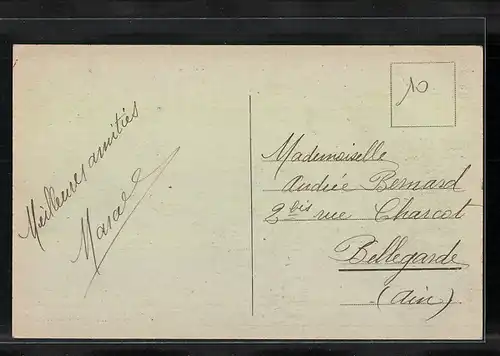 Meilleures amitiés
10
Mademoiselle
Andrée Bernard
2 bis rue Charcot
Bellegarde
(Ain)